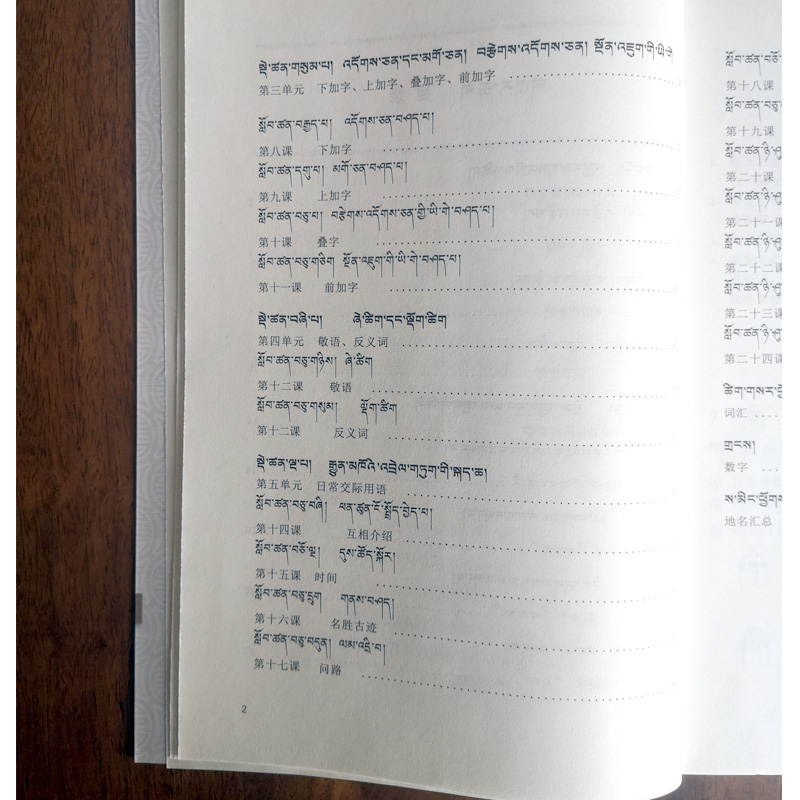 སྡེ་ཚན་གསུམ་པ། འདོགས་ཅན་དང་མགོ་ཅན། བརྩེགས་འདོགས་ཅན། སྔོན་འཇུག་གི་ཡི་གེ
第三单元 下加字、上加字、叠加字、前加字
སློབ་ཚན་བརྒྱད་པ། འདོགས་ཅན་བཤད་པ།
第八课 下加字
སློབ་ཚན་དགུ་པ། མགོ་ཅན་བཤད་པ།
第九课 上加字
སློབ་ཚན་བཅུ་པ། བརྩེགས་འདོགས་ཅན་གྱི་ཡི་གེ་བཤད་པ།
第十课 叠字
སློབ་ཚན་བཅུ་གཅིག སྔོན་འཇུག་གི་ཡི་གེ་བཤད་པ།
第十一课 前加字
སྡེ་ཚན་བཞི་པ། ཞེ་ཚིག་དང་ལྡོག་ཚིག
第四单元 敬语、反义词
སློབ་ཚན་བཅུ་གཉིས། ཞེ་ཚིག
第十二课 敬语
སློབ་ཚན་བཅུ་གསུམ། ལྡོག་ཚིག
第十二课 反义词
སྡེ་ཚན་ལྔ་པ། རྒྱུན་མཁོའི་འབྲེལ་གཏུག་གི་སྐད་ཆ།
第五单元 日常交际用语
སློབ་ཚན་བཅུ་བཞི། ཕན་ཚུན་ངོ་སྤྲོད་བྱེད་པ།
第十四课 互相介绍
སློབ་ཚན་བཅོ་ལྔ། དུས་ཚོད་སྐོར།
第十五课 时间
སློབ་ཚན་བཅུ་དྲུག གནས་བཤད།
第十六课 名胜古迹
སློབ་ཚན་བཅུ་བདུན། ལམ་འདྲི་བ།
第十七课 问路
2
སློབ་ཚན་བཅོ་
第十八课
སློབ་ཚན་བཅུ་
第十九课
སློབ་ཚན་ཉི་ཤུ་
第二十课
སློབ་ཚན་ཉི་ཤུ་
第二十一课
སློབ་ཚན་ཉི་ཤུ་
第二十二课
སློབ་ཚན་ཉི་ཤུ་
第二十三课
སློབ་ཚན་ཉི་ཤུ་
第二十四课
ཚིག་གསར་
词汇
གྲངས།
数字
ས་མིང་ཕྱོགས་
地名汇总